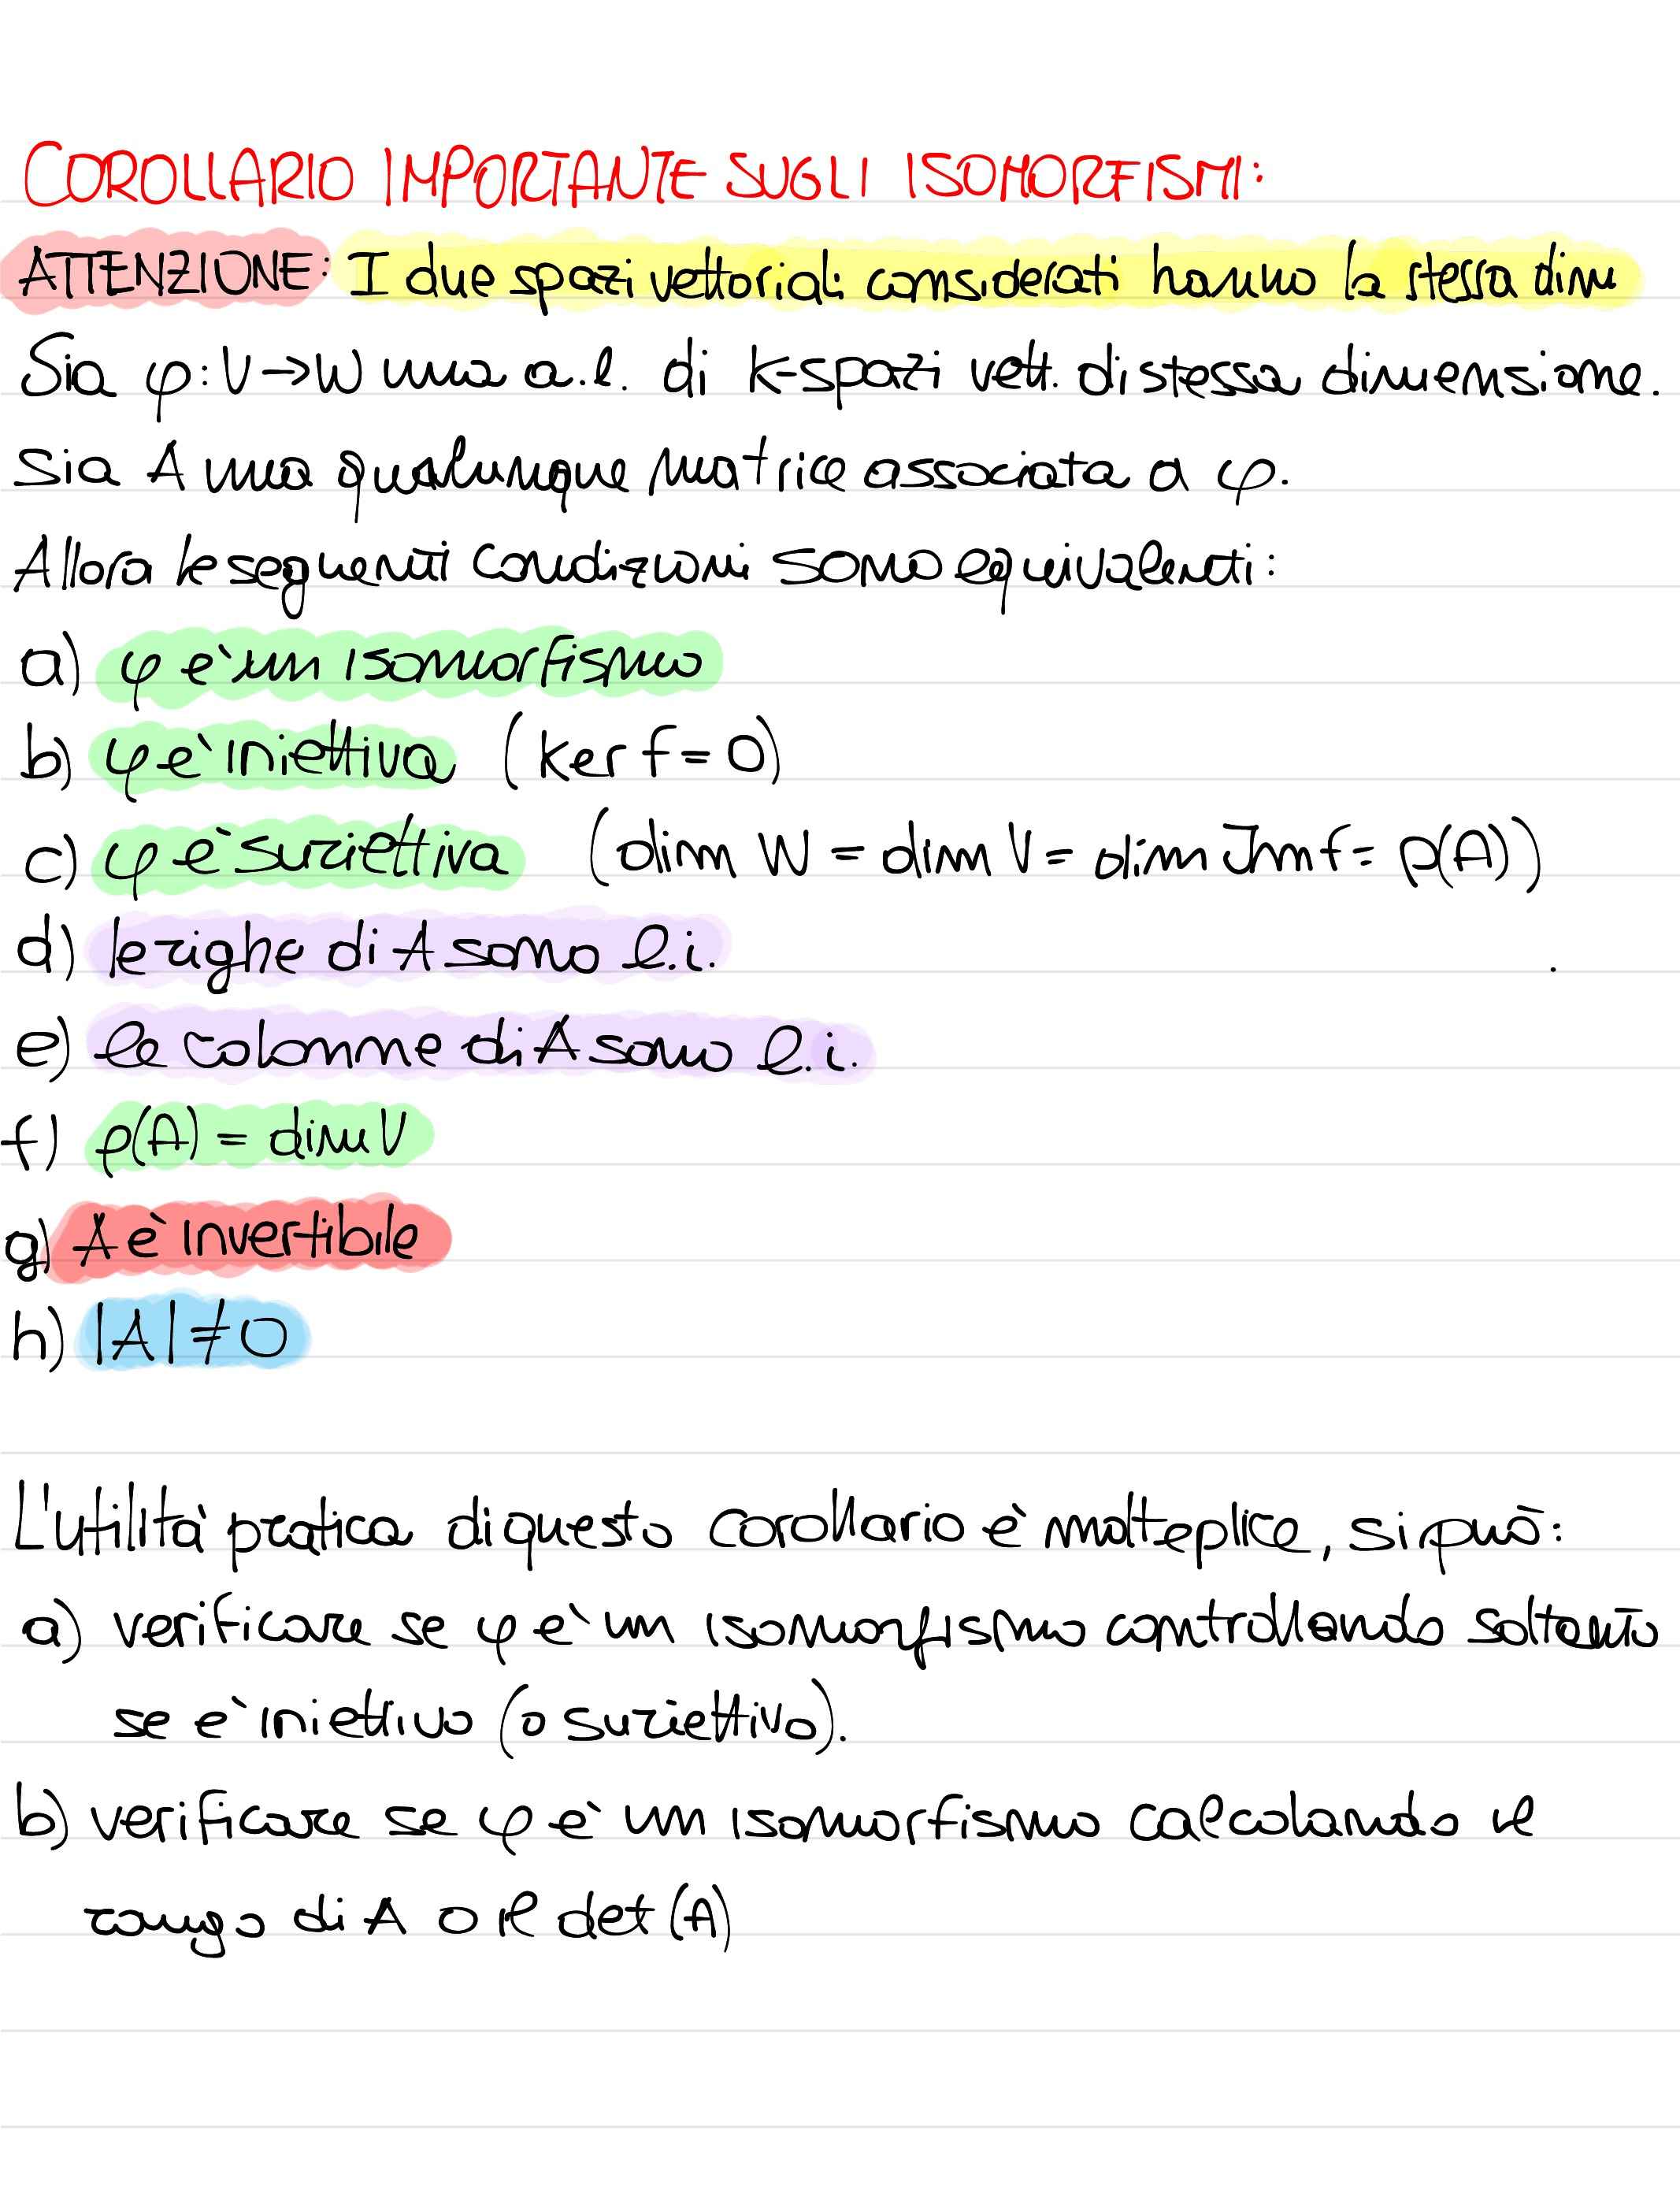 COROLLARIO IMPORTANTE SUGLI ISOMORFISMI:
ATTENZIONE: I due spazi vettoriali considerati hanno la stessa dim
Sia φ: V→W una a.l. di K-spazi vett. di stessa dimensione.
Sia A una qualunque matrice associata a φ.
Allora le seguenti condizioni sono equivalenti:
a) φ è un isomorfismo
b) φ è iniettiva (ker f = 0)
c) φ è suriettiva (dim W = dim V = dim Im f = ρ(A))
d) le righe di A sono l.i.
e) le colonne di A sono l.i.
f) ρ(A) = dim V
g) A è invertibile
h) |A| ≠ 0
L'utilità pratica di questo corollario è molteplice, si può:
a) verificare se φ è un isomorfismo controllando soltanto
se è iniettivo (o suriettivo).
b) verificare se φ è un isomorfismo calcolando il
rango di A o il det (A)